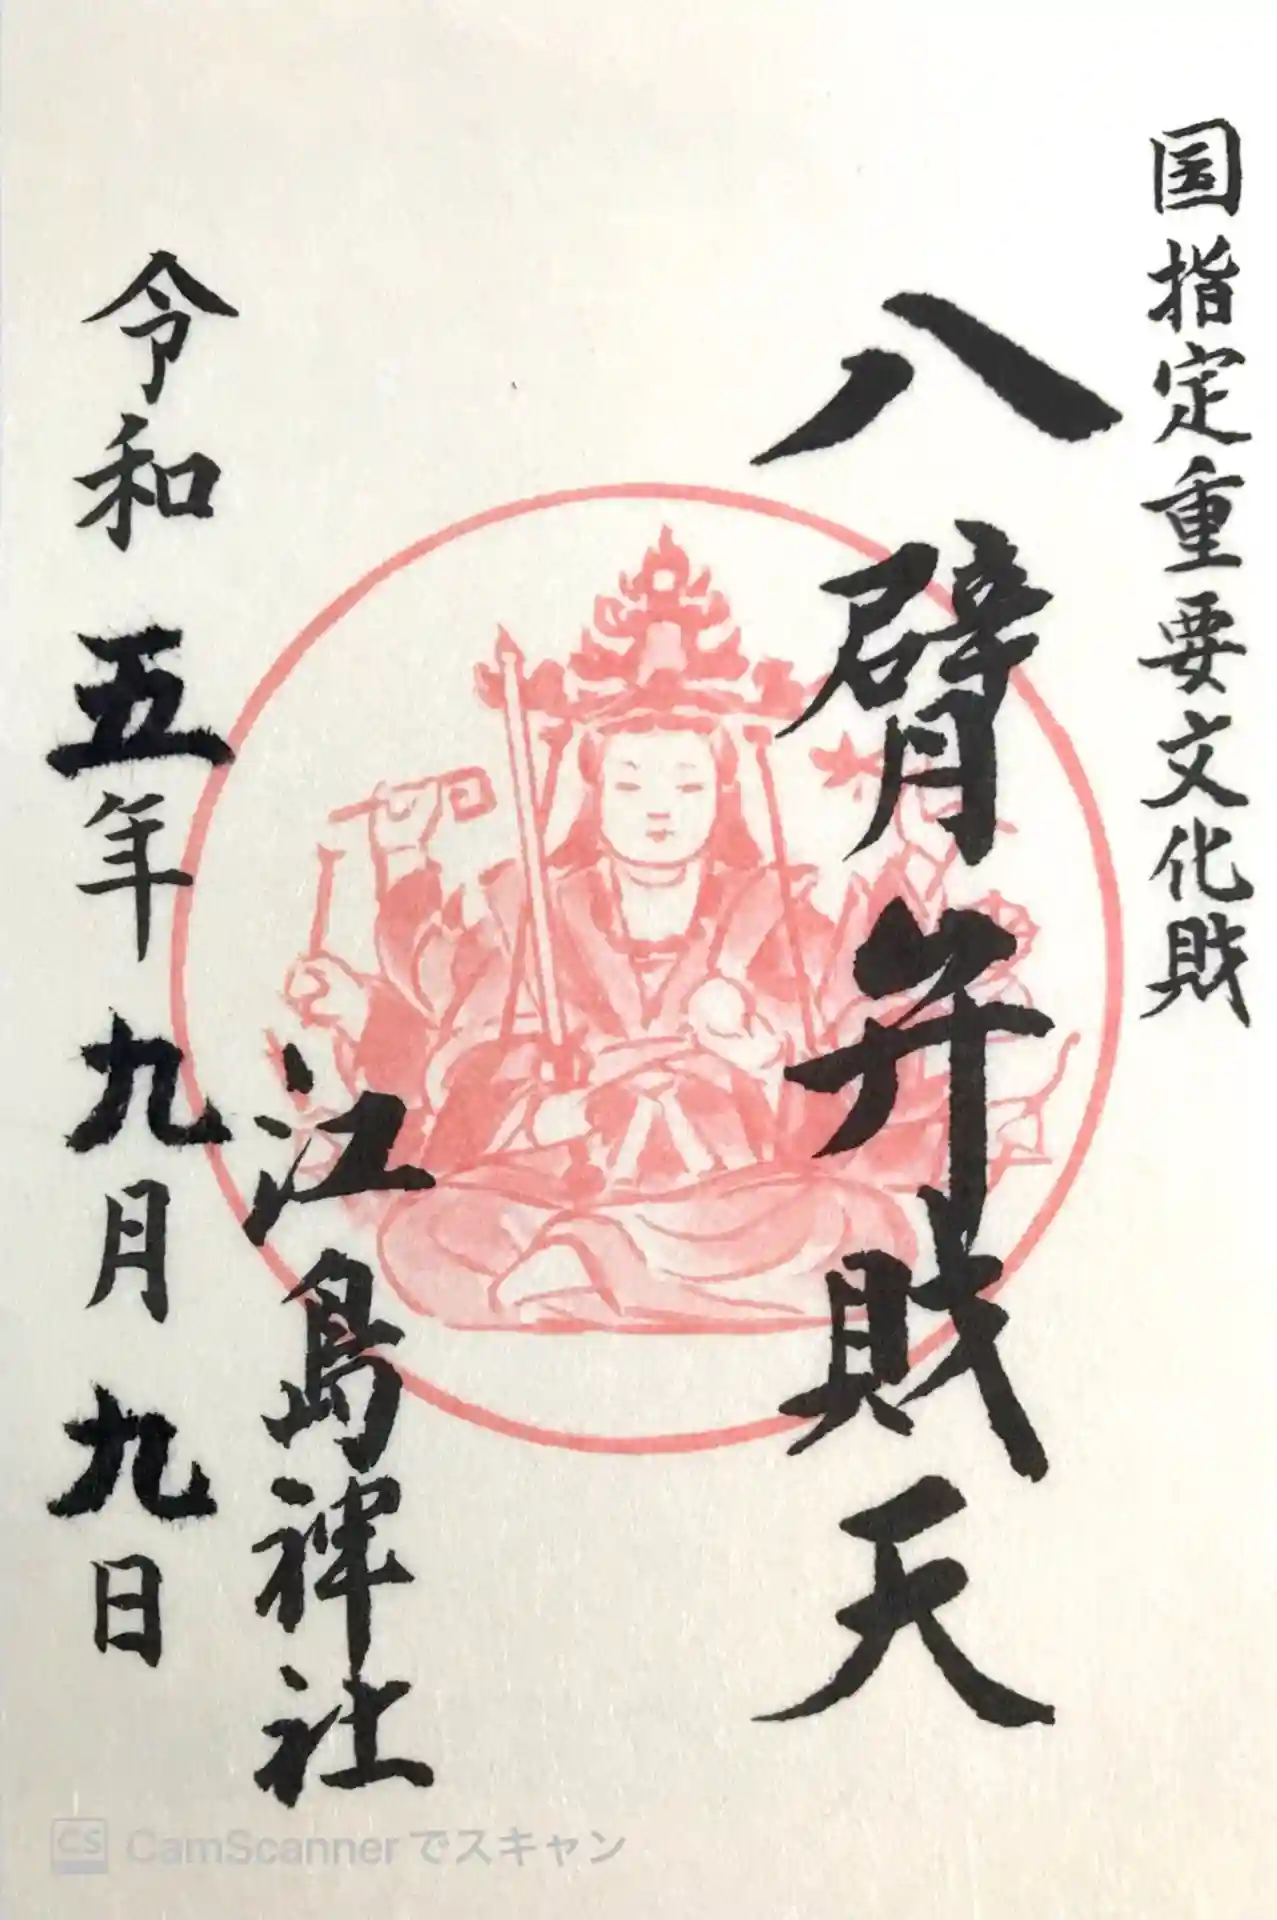 国指定重要文化財
八臂弁財天
江島神社
令和五年九月九日
CS CamScannerでスキャン